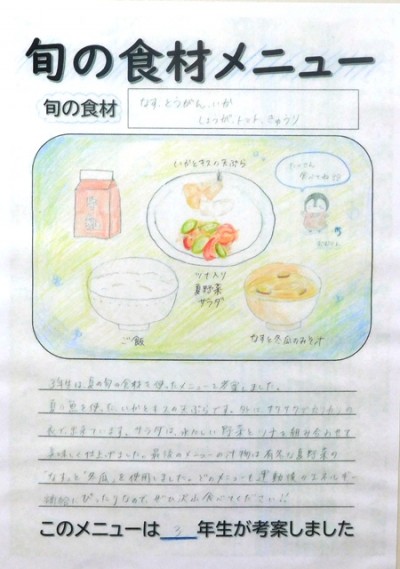 旬の食材メニュー
旬の食材
なす、とうがん、いか
しょうが、トマト、きゅうり
いかとキスの天ぷら
たくさん
食べてね!!
牛乳
ツナ入り
夏野菜
サラダ
ご飯
なすと冬瓜のみそ汁
3年生は、夏の旬の食材を使ったメニューを考案しました。
夏に魚を使った、いかとキスの天ぷらです。外は、サクサクで
出来ています。サラダは、夏野菜とツナを組み合わせて
美味しく仕上げました。最後のメニューの汁物は有名な夏野菜の
"なす"と"冬瓜"を使用しました。どのメニューも運動後のエネルギー
補給にぴったりなので、ぜひ沢山食べてください!!
このメニューは3年生が考案しました